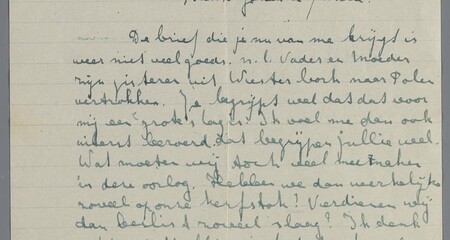 De brief die je nu van me krijgt is
weer niet veel goeds. n.l. Vader en Moeder
zijn gisteren uit Westerbork naar Polen
vertrokken. Je begrijpt wel dat dat voor
mij een grote slag is. Ik voel me dan ook
uiterst beroerd, dat begrijpen jullie wel.
Wat moeten wij toch veel meemaken
in deze oorlog. Hebben we dan werkelijk
zoveel op onze kerfstok? Verdienen wij
dan beslist zoveel slaag? Ik denk